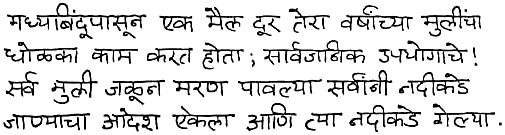 मध्यबिंदूपासून एक मैल दूर तेरा वर्षांच्या मुलींचा
घोळका काम करत होता; सार्वजानिक उपयोगाचे!
सर्व मुली जळून मरण पावल्या सर्वांनी नदीकडे
जाण्याचा आदेश ऐकला आणि त्या नदीकडे गेल्या.